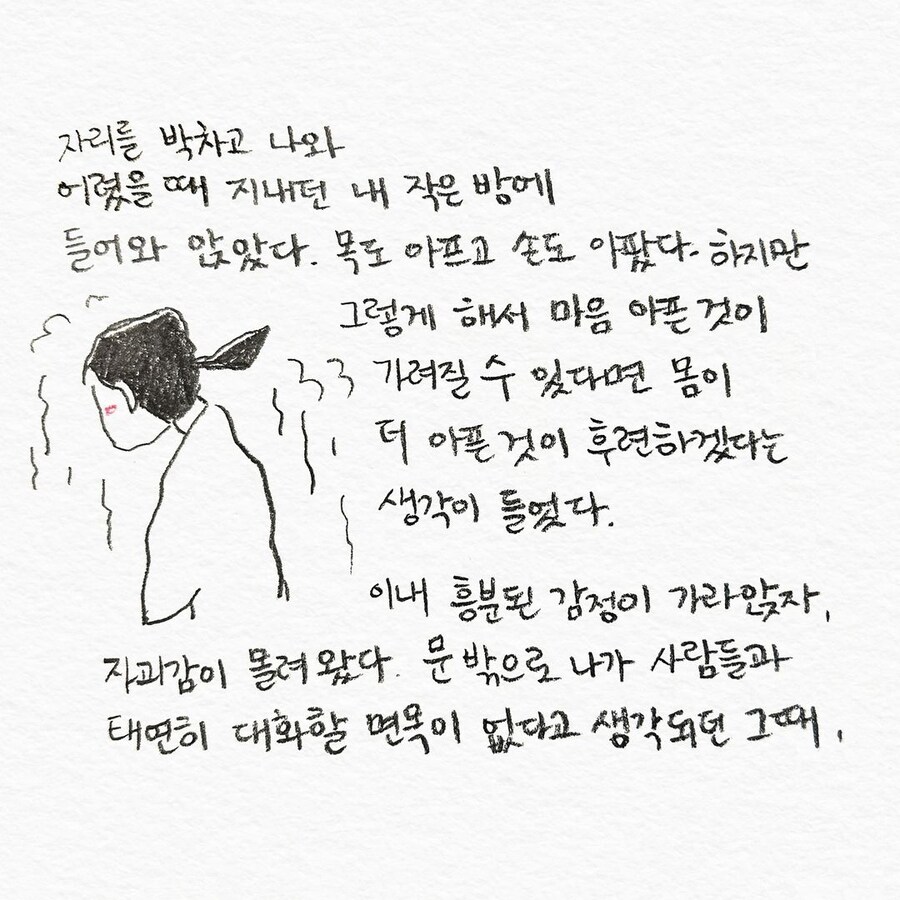 자리를 박차고 나와
어렸을 때 지내던 내 작은 방에
들어와 앉았다. 목도 아프고 손도 아팠다. 하지만
그렇게 해서 마음 아픈 것이
가려질 수 있다면 몸이
더 아픈 것이 후련하겠다는
생각이 들었다.
이내 흥분된 감정이 가라앉자,
자괴감이 몰려왔다. 문 밖으로 나가 사람들과
태연히 대화할 면목이 없다고 생각되던 그때,